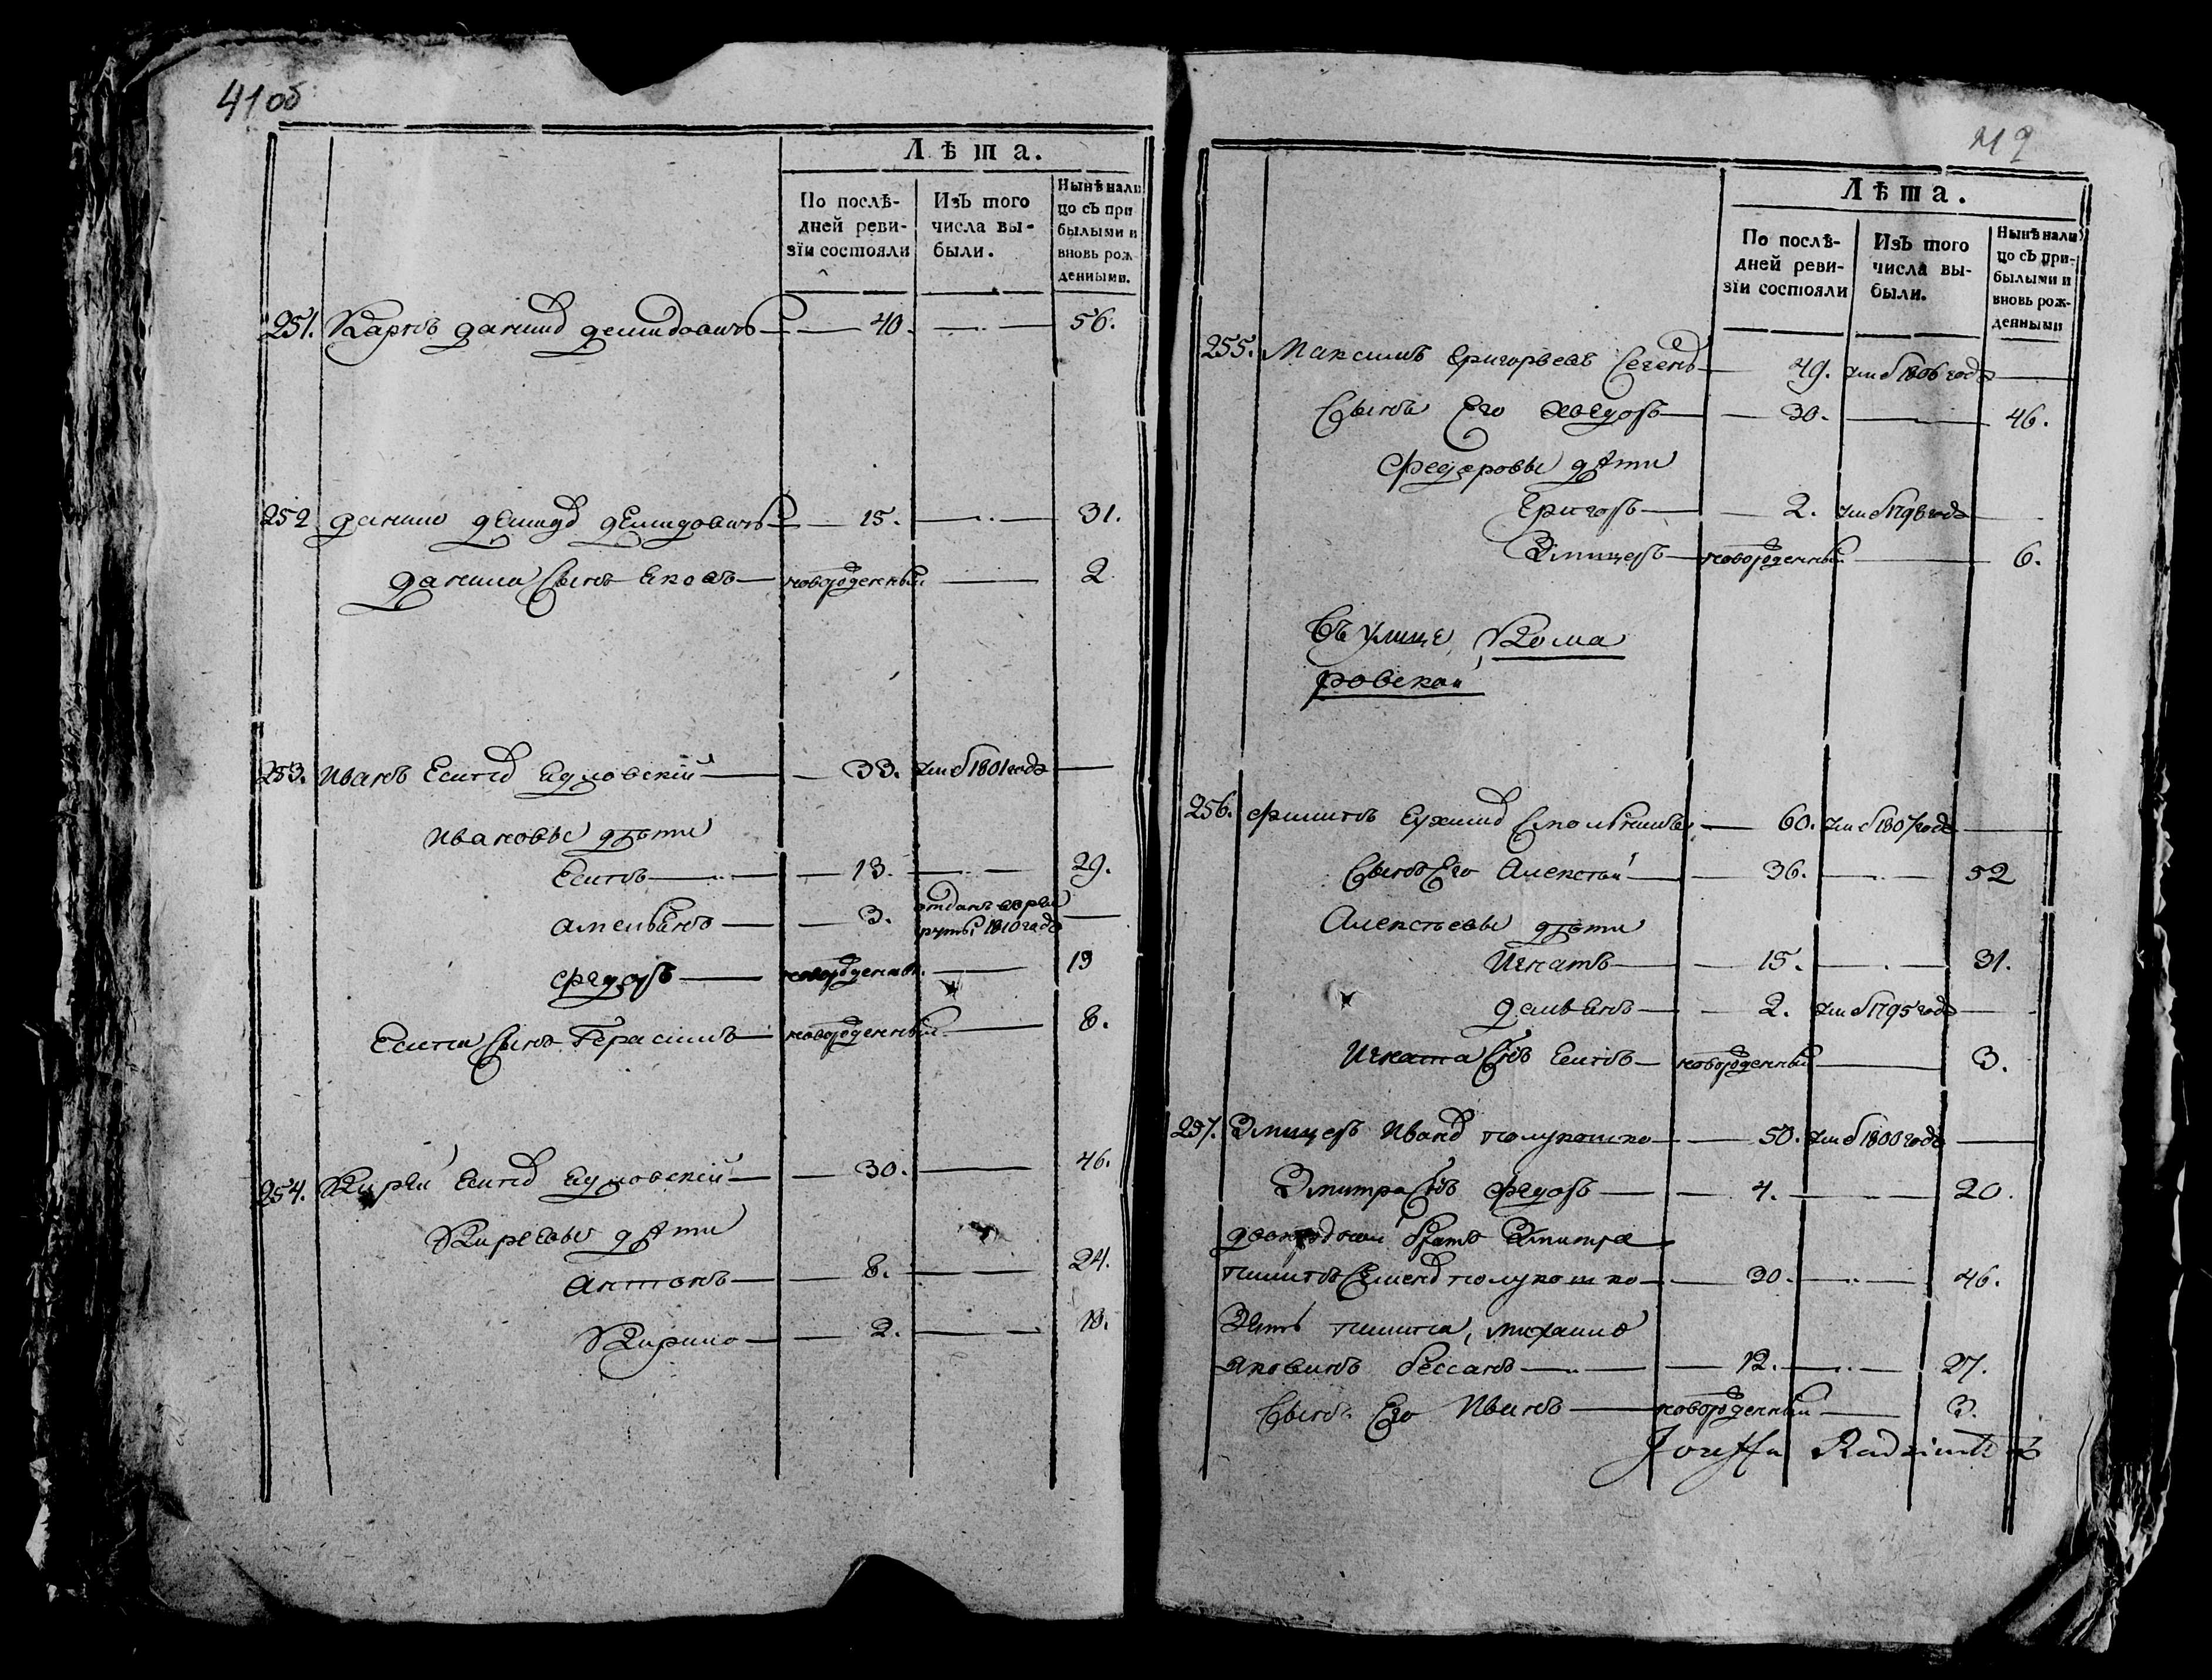 41 об
Лѣта.
По послѣ-
дней реви-
зїи состояли
Изъ того
числа вы-
были.
Нынѣ нали
цо съ при
былыми и
вновь рож
денными.
251. Карпъ данилов демидовичъ — 40. — 56.
252 данило демидов демидовичъ — 15. — 31.
данила Сынъ Яковъ — новорожденный — 2
253. Иванъ Есипов — 33. Ум. 1801 года —
Ивановы дѣти
Есипъ — 13. — 29.
3. отданъ в рек
руты 1810 года —
Федоръ — новорожденный. — 13
Есипа Сынъ Герасимъ — новорожденный — 8.
254. Кирей Есипов — 30. — 46.
Киреевы дѣти
антонъ — 8. — 24.
Кирило — 2. — 18.
Лѣта.
По послѣ-
дней реви-
зїи состояли
Изъ того
числа вы-
были.
Нынѣ нали
цо съ при-
былыми и
вновь рож-
денными
255. Максимъ Григорьевъ — 49. Ум. 1806 года —
Сынъ Его Хведоръ — 30. — 46.
Федеровы дѣти
Григоръ — 2. Ум. 1798 года
Дмитеръ — новорожденный — 6.
Въ улице Кома
ровскай
256. Филипъ — 60. Ум. 1807 года —
Сынъ Его Алексѣй — 36. — 52
Алексѣевы дѣти
Игнатъ — 15. — 31.
демьянъ — 2. Ум. 1795 года —
Игната Снъ Есипъ — новорожденный — 3.
257. Дмитеръ Иванов полукошко — 50. Ум. 1800 года —
Дмитра Снъ Федоръ — 4. — 20.
двоюродный братъ Дмитра
Пилипъ Семенов полукошко — 30. — 46.
Зять Пилипа, михаило
Яковинъ бессанъ — 12. — 27.
Сынъ Его Иванъ — новорожденный — 3.